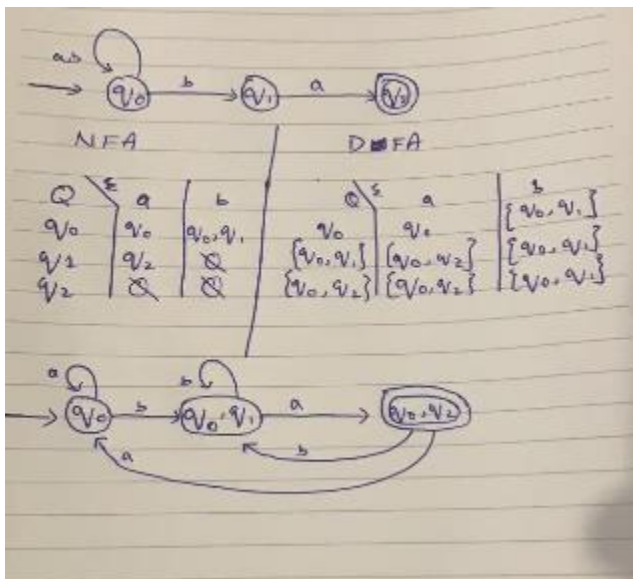 a,b
q0 b q1 a q2
NFA
Q Σ a b
q0 q0 q0, q1
q1 q2 ∅
q2 ∅ ∅
DFA
Q Σ a b
q0 q0 {q0, q1}
{q0, q1} {q0, q2} {q0, q1}
{q0, q2} {q0, q2} {q0, q1}
a b
q0 b q0, q1 a q0, q2
b
a